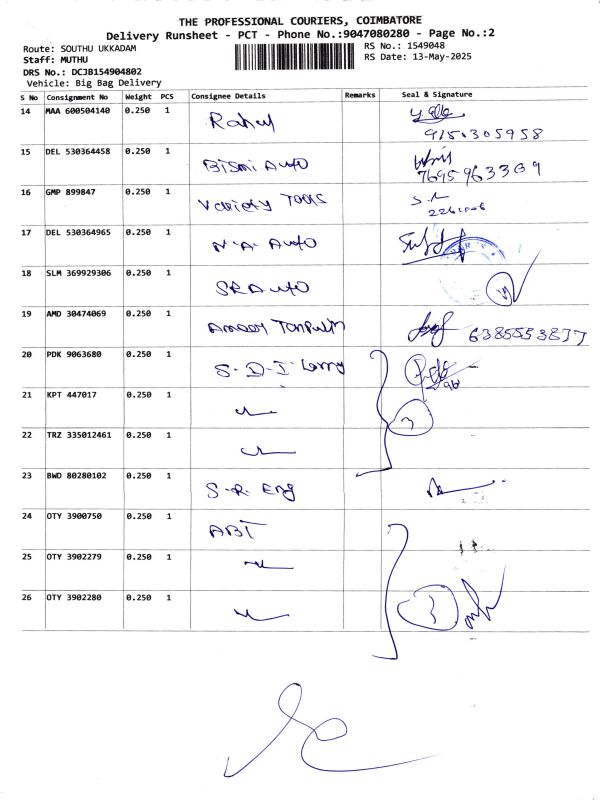 THE PROFESSIONAL COURIERS, COIMBATORE
Delivery Runsheet - PCT - Phone No.:9047080280 - Page No.:2
Route: SOUTHU UKKADAM
RS No.: 1549048
Staff: MUTHU
RS Date: 13-May-2025
DRS No.: DCJB154904802
Vehicle: Big Bag Delivery
S No Consignment No Weight PCS Consignee Details Remarks Seal & Signature
14 MAA 600504140 0.250 1 Rahul
9150305958
15 DEL 530364458 0.250 1 Bismi Auto
7695963309
16 GMP 899847 0.250 1 Variety Tools
17 DEL 530364965 0.250 1 N.A. Auto
18 SLM 369929306 0.250 1 SR Auto
19 AMD 30474069 0.250 1
20 PDK 9063680 0.250 1 S-D-I Lorry
21 KPT 447017 0.250 1
3
22 TRZ 335012461 0.250 1
23 BWD 80280102 0.250 1 S-R- Eng
24 OTY 3900750 0.250 1 ABT
25 OTY 3902279 0.250 1
26 OTY 3902280 0.250 1
3